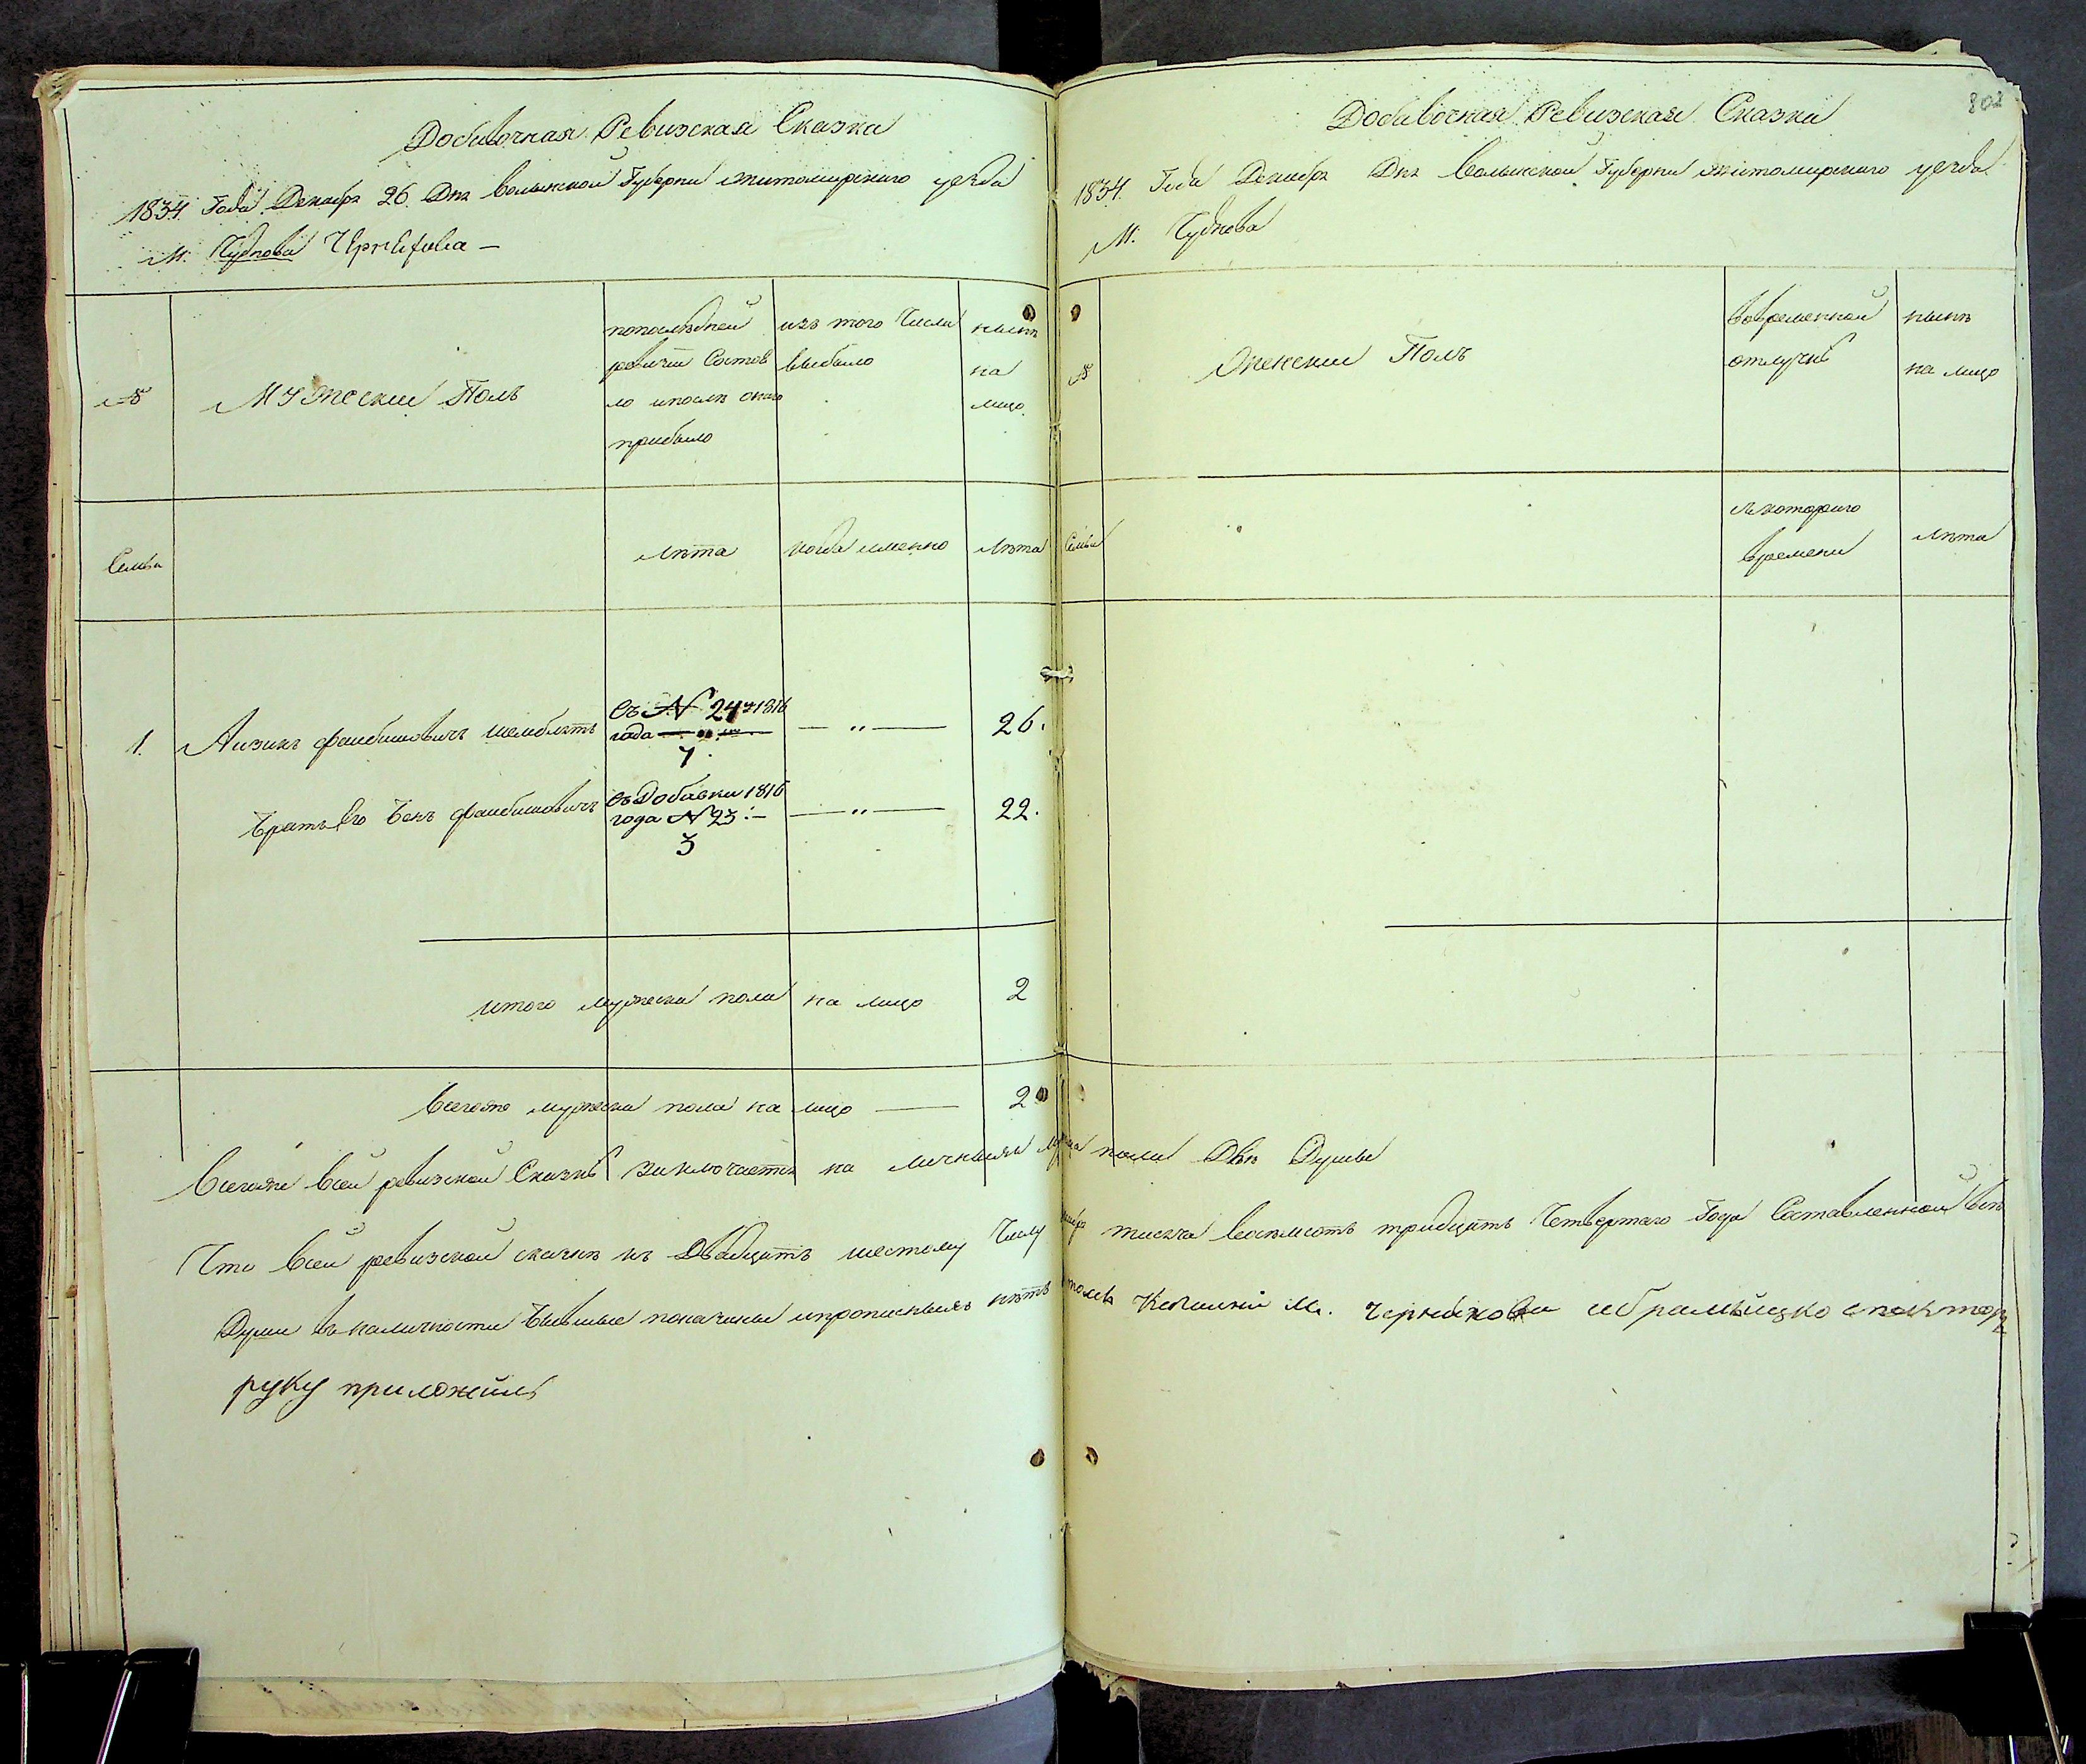 Добавочная Ревизская Сказка
1834 Года Декабря 26 Дня Волынской Губернии Житомирского уезда
М. Чуднова
№
Мужеский Полъ
попоследней
ревизии Состоя
ло ипосле оной
прибыло
изъ того Числа
выбыло
ныне
на
лицо
Семьи
лѣта
когда именно
лѣта
1. Аизикъ Фаибишовичъ
Съ № 24 1816
года
7
— " —
26.
Братъ Его Беръ Фаибишовичъ
Съ Добавки 1816
года № 23
3
— " —
22.
итого мужеска пола на лицо 2
Всегоже мужеска пола на лицо — 2
802
Добавочная Ревизская Сказка
1834 Года Декабря Дня Волынской Губернии Житомирского уезда
М. Чуднова
№
Женский Полъ
вовременной
отлучке
ныне
на лицо
Семьи
скоторого
времени
лѣта
Всегоже всей ревизской Сказке заключается на пола Две Душы
Что всей ревизской скаске къ Двадцать шестому Числу тысяча восемсотъ тридцать Четвертаго Года Составленной все
Души вналичности бывшые показаны ипрописныхъ нетъ М.
руку приложилъ